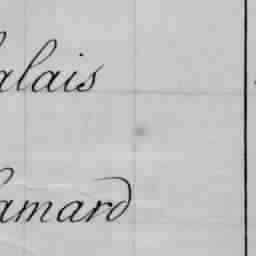 alais
amard